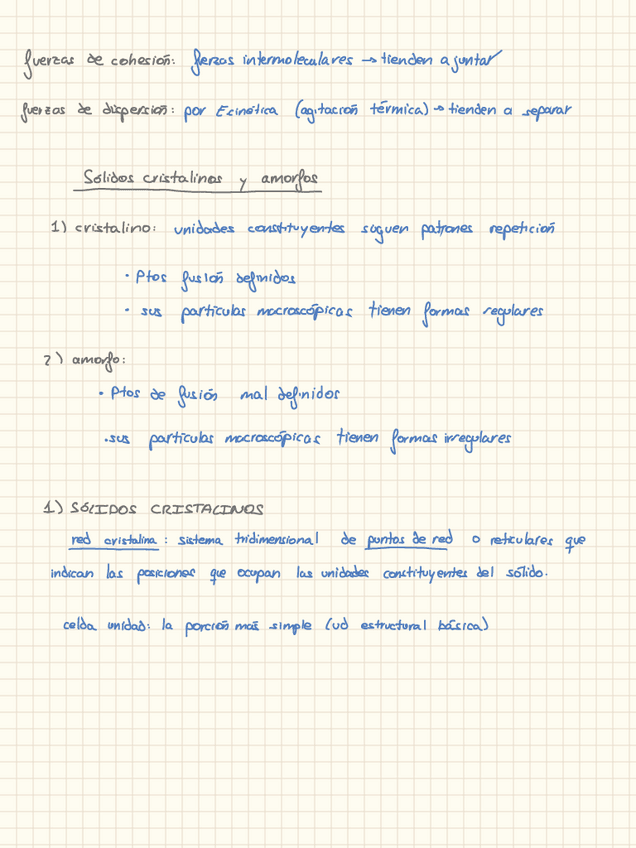 fuerzas de cohesión: ferzas intermoleculares → tienden a juntar
fuerzas de dispersión: por Ecinética (agitación térmica) → tienden a separar
Sólidos cristalinos y amorfos
1) cristalino: unidades constituyentes siguen patrones repetición
• Ptos fusión definidos
• sus partículas macroscópicas tienen formas regulares
2) amorfo:
• Ptos de fusión mal definidos
• sus partículas macroscópicas tienen formas irregulares
1) SÓLIDOS CRISTALINOS
red cristalina: sistema tridimensional de puntos de red o reticulares que
indican las posiciones que ocupan las unidades constituyentes del sólido.
celda unidad: la porción más simple (ud estructural básica)